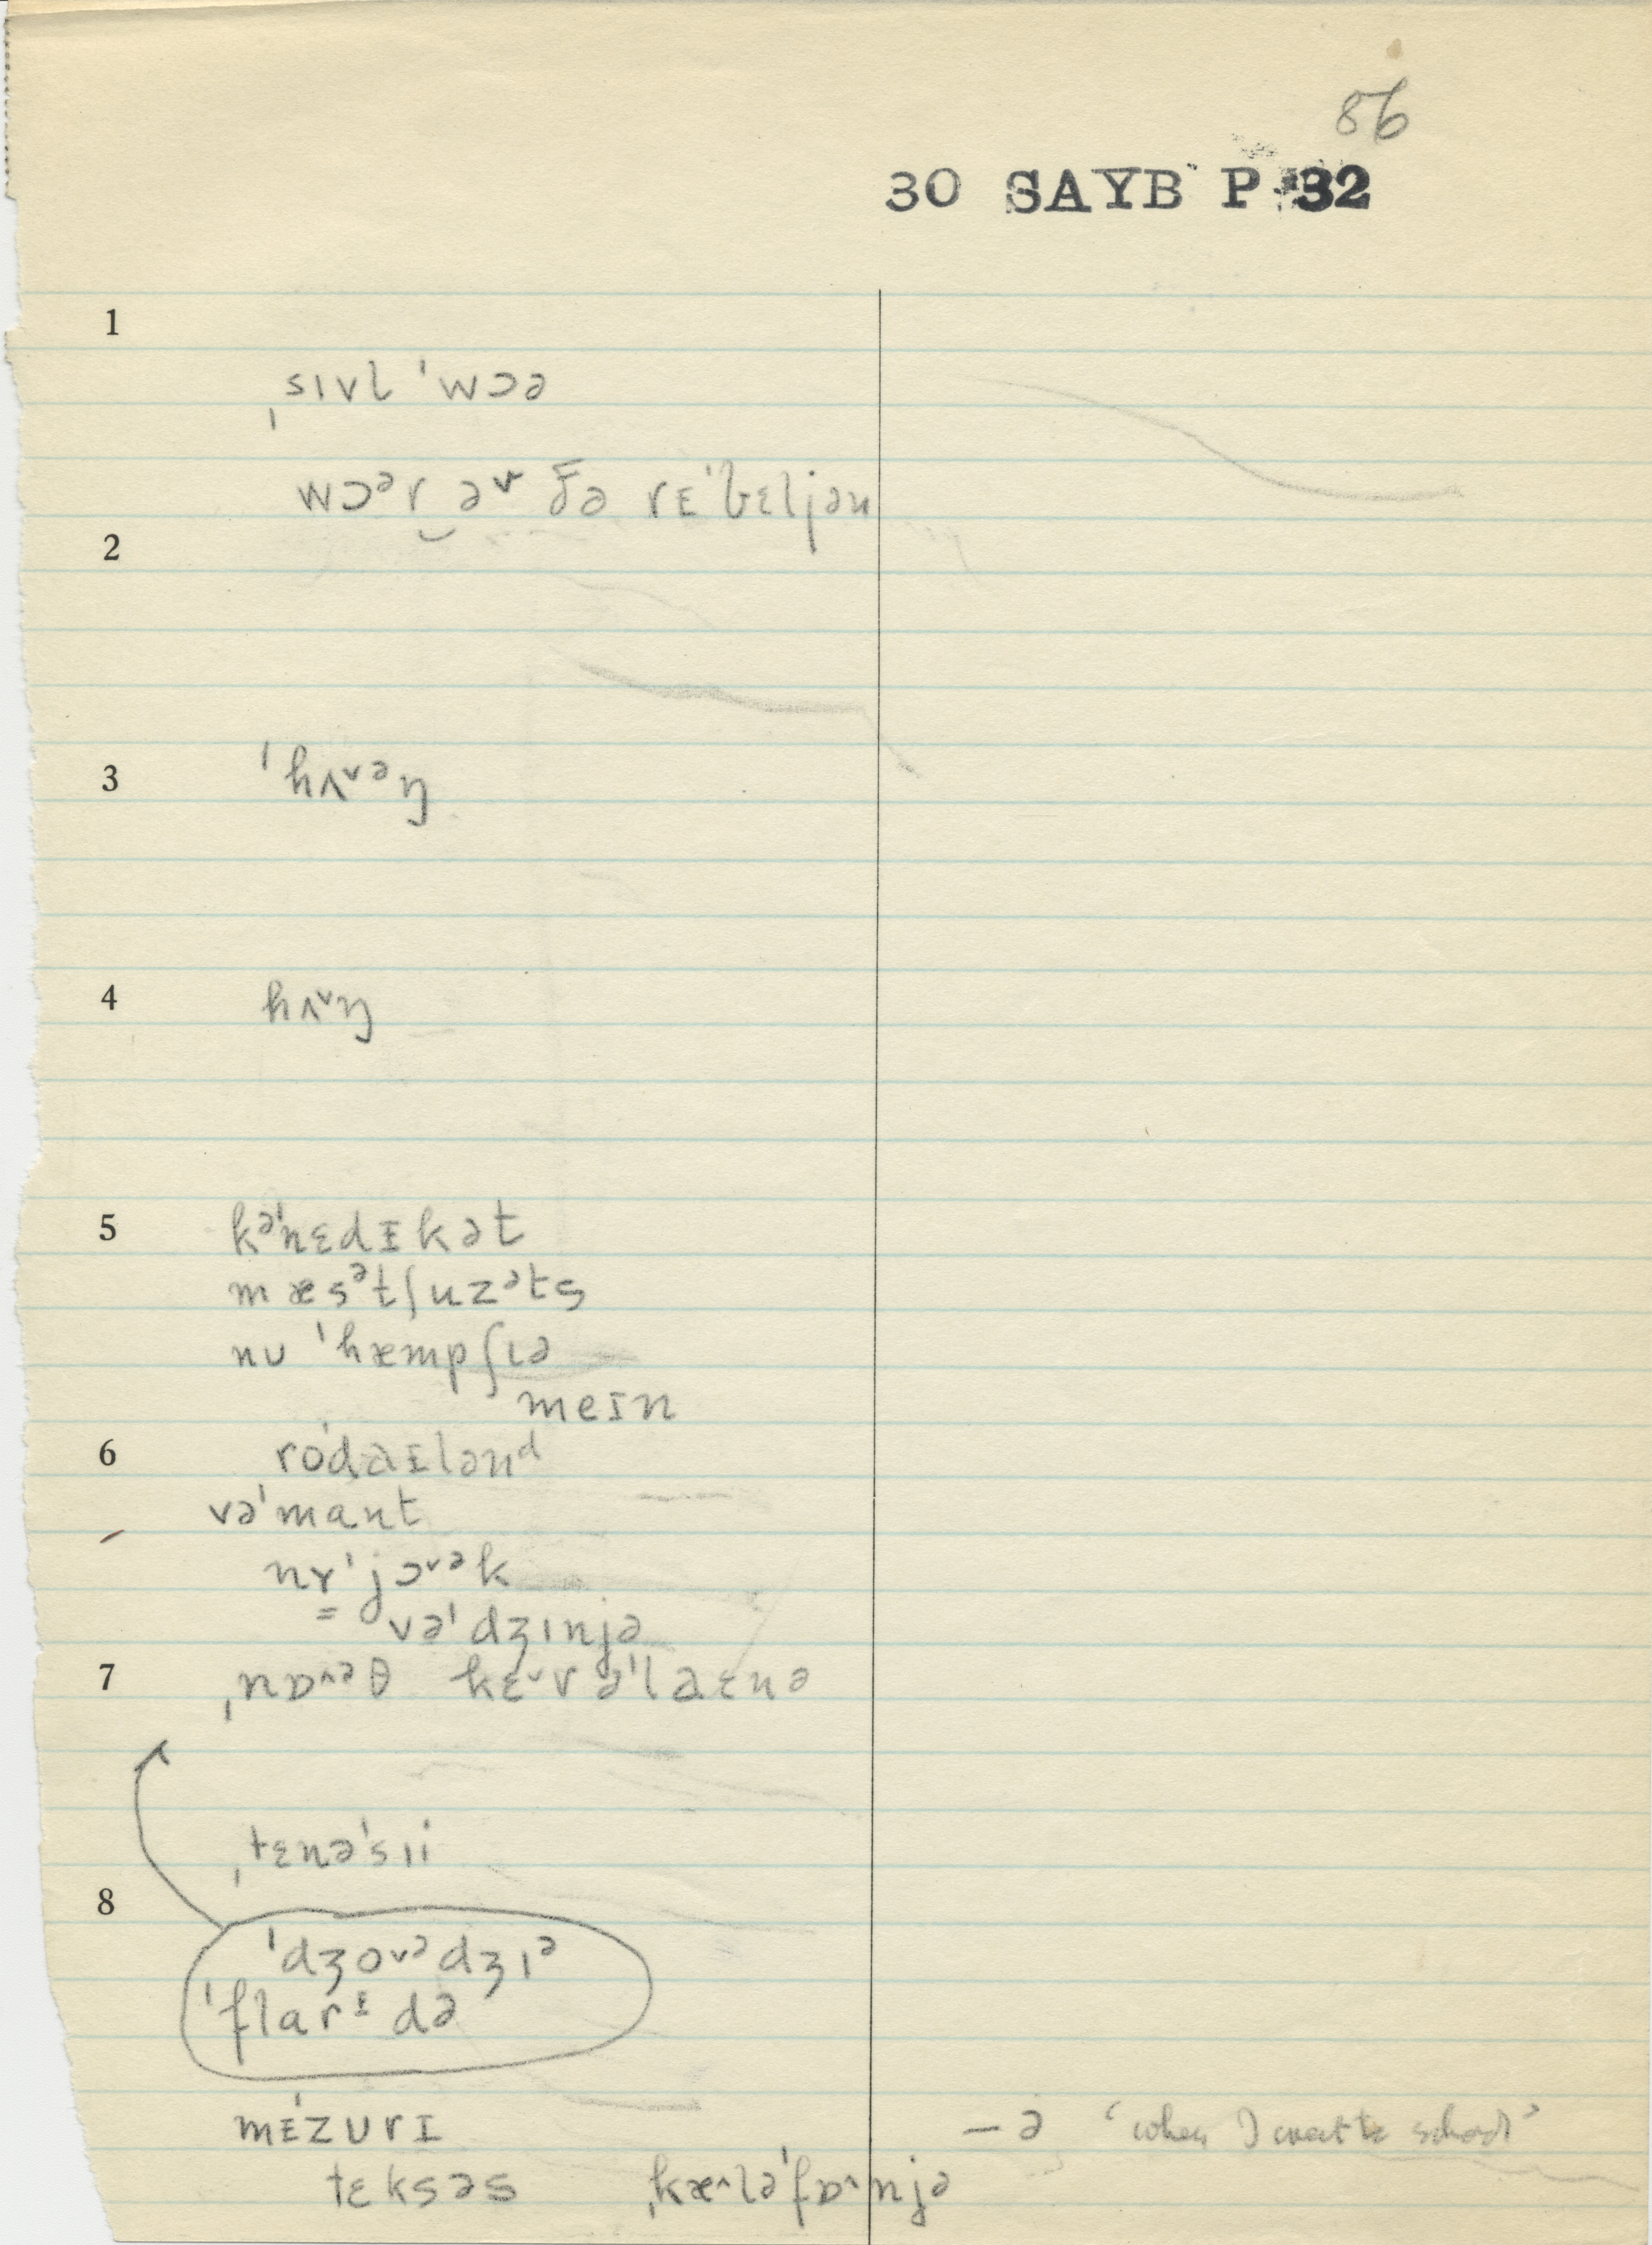 86
30 SAYB P 32
1
ˌsɪvl ˈwɔə
wɔᵊr‿əv ðə rɛˈbɛljən
2
3
ˈhʌ˅ᵊŋ
4
hʌ˅ŋ
5
kᵊˈnɛdɪkət
mæsᵊtʃuzᵊts
nu ˈhæmpʃɪə
meɪn
6
roˈdaɪlənᵈ
vəˈmant
nɤˈjɔ˅ᵊk
vəˈdʒɪnjə
7
ˌnɒ˄ᵊθ kɛ˅rəˈlaɛnə
ˌtɛnəˈsɪi
8
ˈdʒo˅ᵊdʒɪᵊ
ˈflarᶦdə
mɛˈzurɪ
– ə ‘when I went to school’
tɛksəs ˌkæ˄ləˈfɒ˄njə